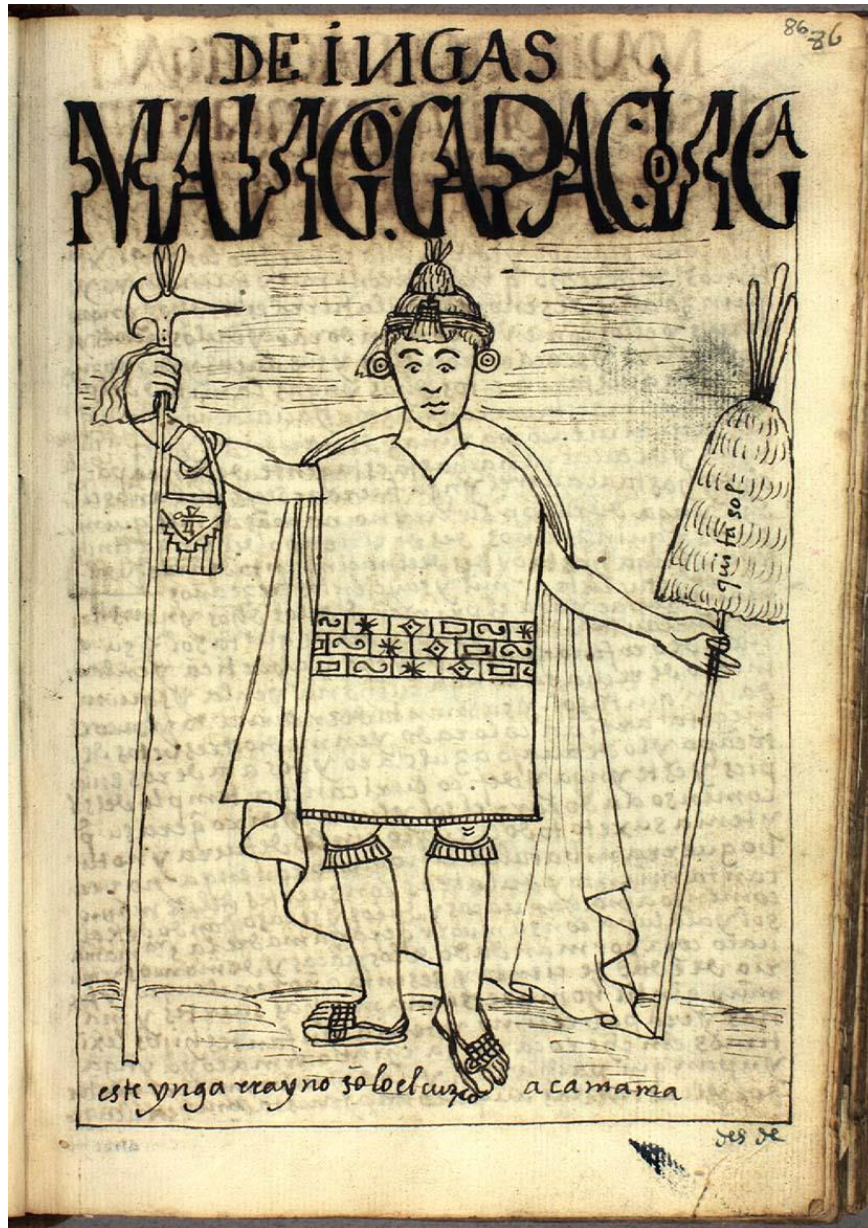 86 86
DE iNGAS
MANGO:CAPAC:iNGA
quitasol
este ynga rrayno solo el cuzco acamama
des de